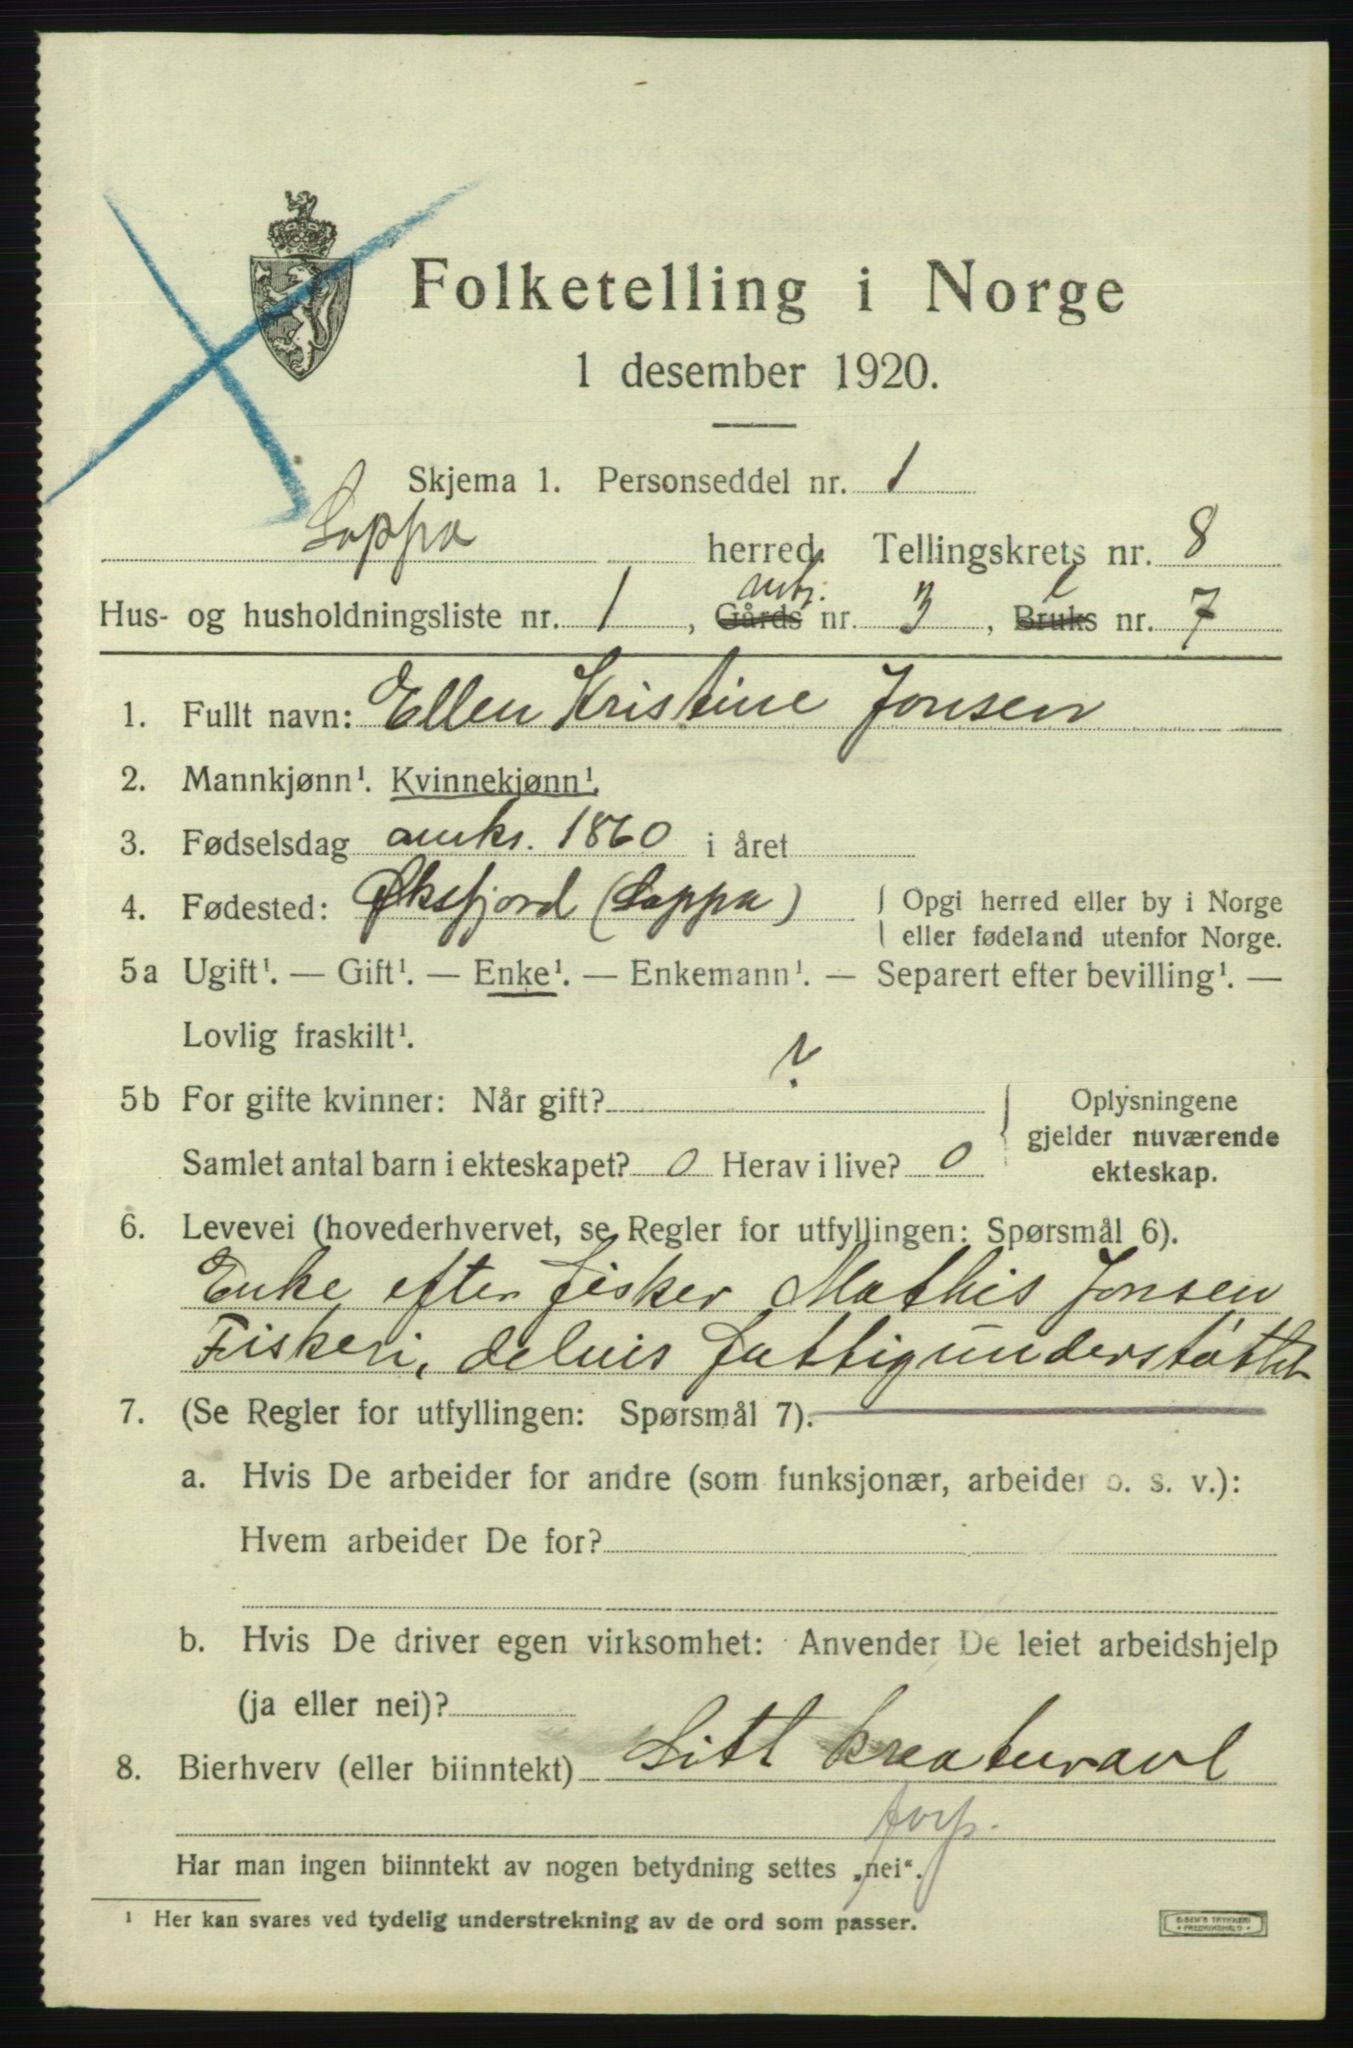 Folketelling i Norge
1 desember 1920.
Skjema 1. Personseddel nr. 1
Loppa herred. Tellingskrets nr. 8
Hus- og husholdningsliste nr. 1, Gårds nr. 3, Bruks nr. 7
1. Fullt navn: Ellen Kristine Jonsen
2. Mannkjønn¹. Kvinnekjønn¹.
3. Fødselsdag omkr. 1860 i året
4. Fødested: Øksfjord (Loppa) Opgi herred eller by i Norge
eller fødeland utenfor Norge.
5a Ugift¹. — Gift¹. — Enke¹. — Enkemann¹. — Separert efter bevilling¹. —
Lovlig fraskilt¹.
5b For gifte kvinner: Når gift? ?
Samlet antal barn i ekteskapet? 0 Herav i live? 0
Oplysningene
gjelder nuværende
ekteskap.
6. Levevei (hovederhvervet, se Regler for utfyllingen: Spørsmål 6).
Enke efter fisker Mathis Jonsen
Fiskeri, delvis fattigunderstøttet
7. (Se Regler for utfyllingen: Spørsmål 7).
a. Hvis De arbeider for andre (som funksjonær, arbeider o. s. v.):
Hvem arbeider De for?
b. Hvis De driver egen virksomhet: Anvender De leiet arbeidshjelp
(ja eller nei)?
8. Bierhverv (eller biinntekt) Litt kreaturavl
forp.
Har man ingen biinntekt av nogen betydning settes „nei“.
¹ Her kan svares ved tydelig understrekning av de ord som passer.